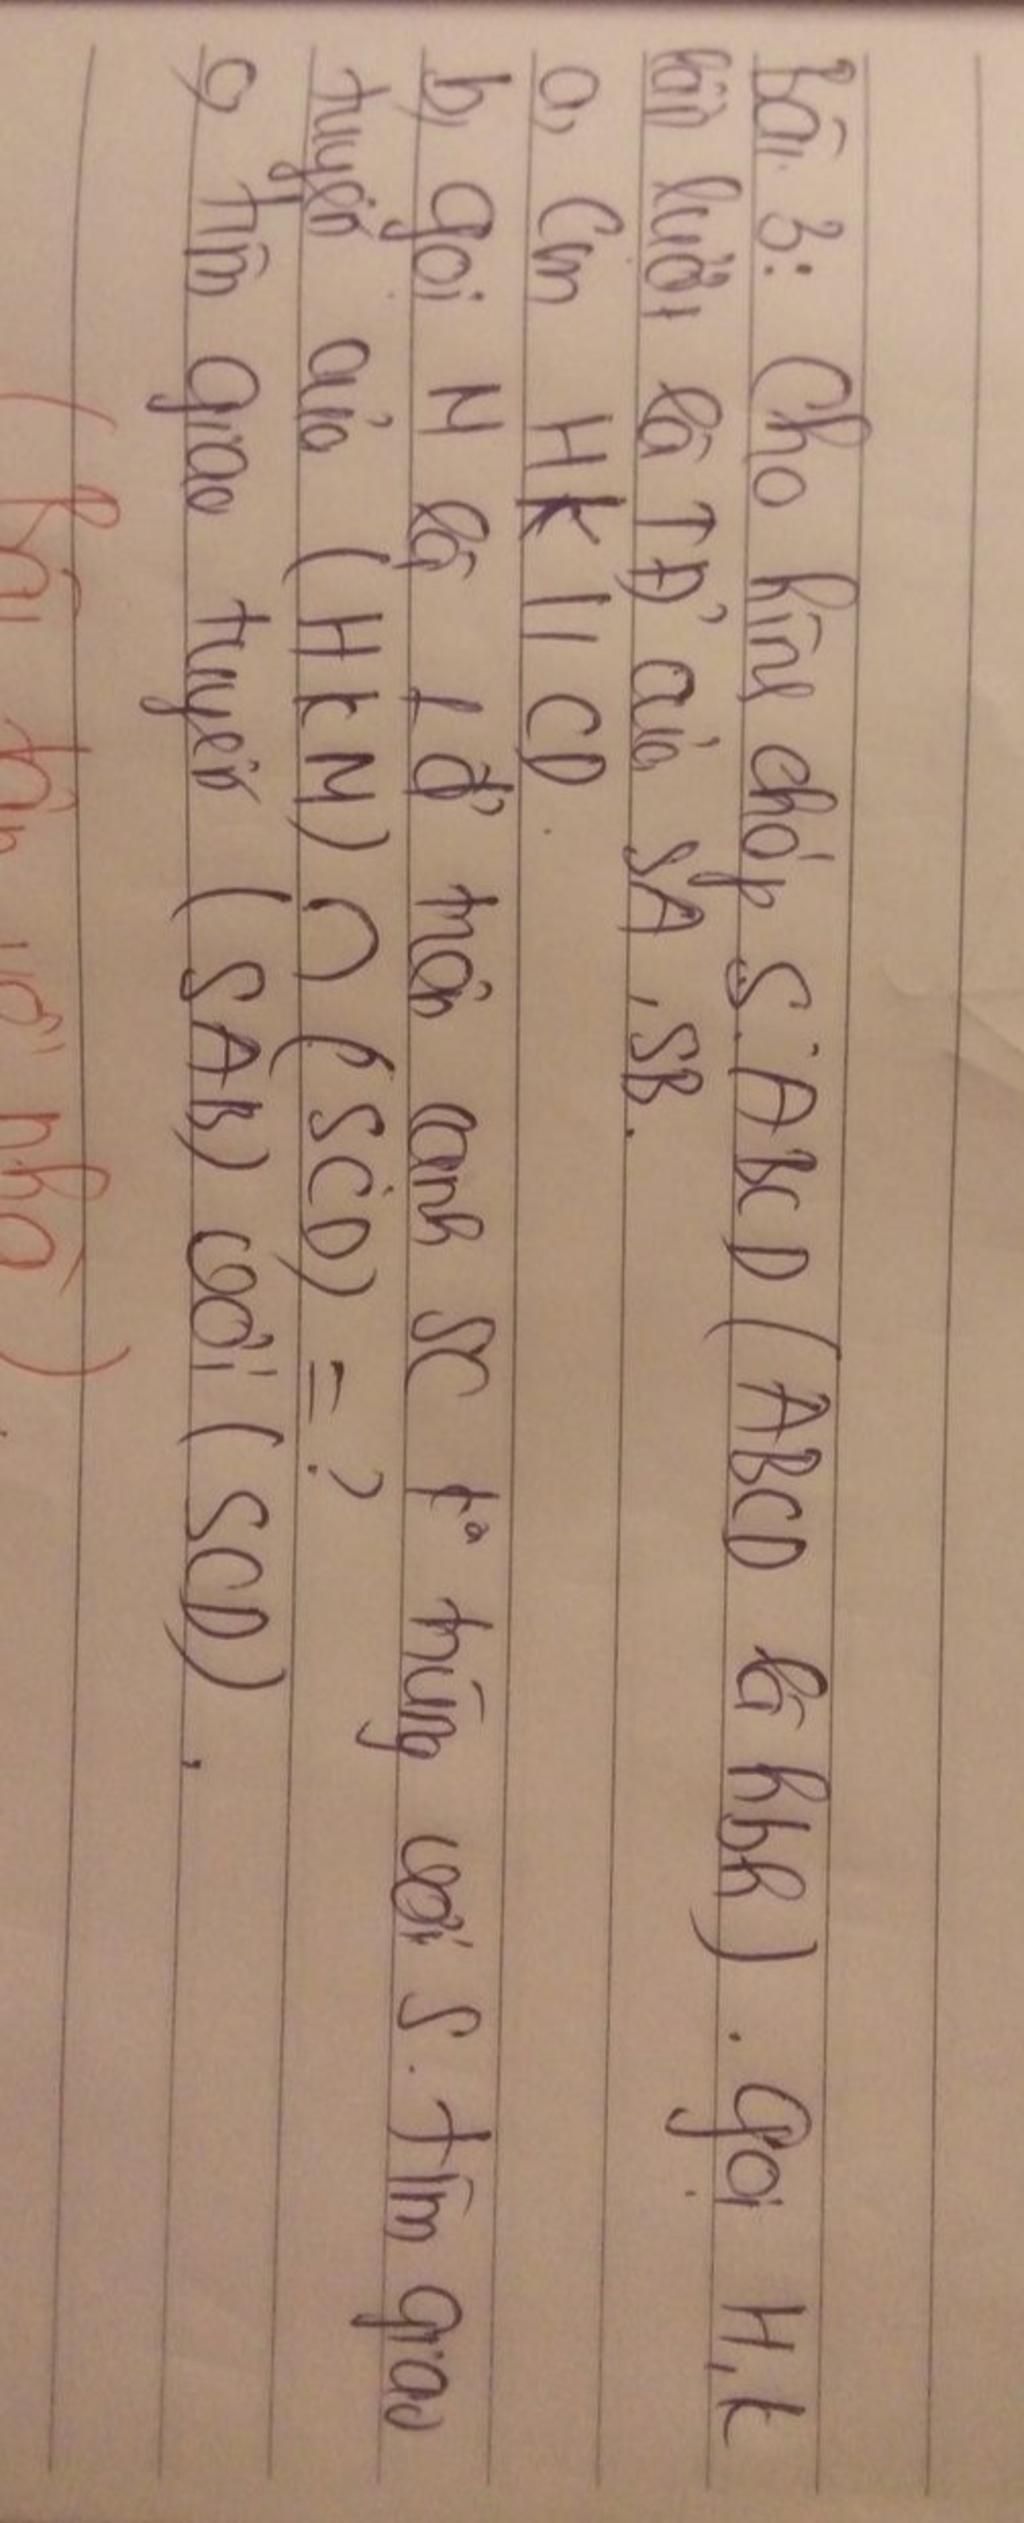 Bài 3: Cho hình chóp S.ABCD (ABCD là hbh). Gọi H, K
lần lượt là TĐ' của SA, SB.
a, Cm HK // CD.
b, Gọi M là 1 đ' trên cạnh SC k° trùng với S. Tìm giao
tuyến của (HKM) ∩ (SCD) = ?
c, Tìm giao tuyến (SAB) với (SCD).